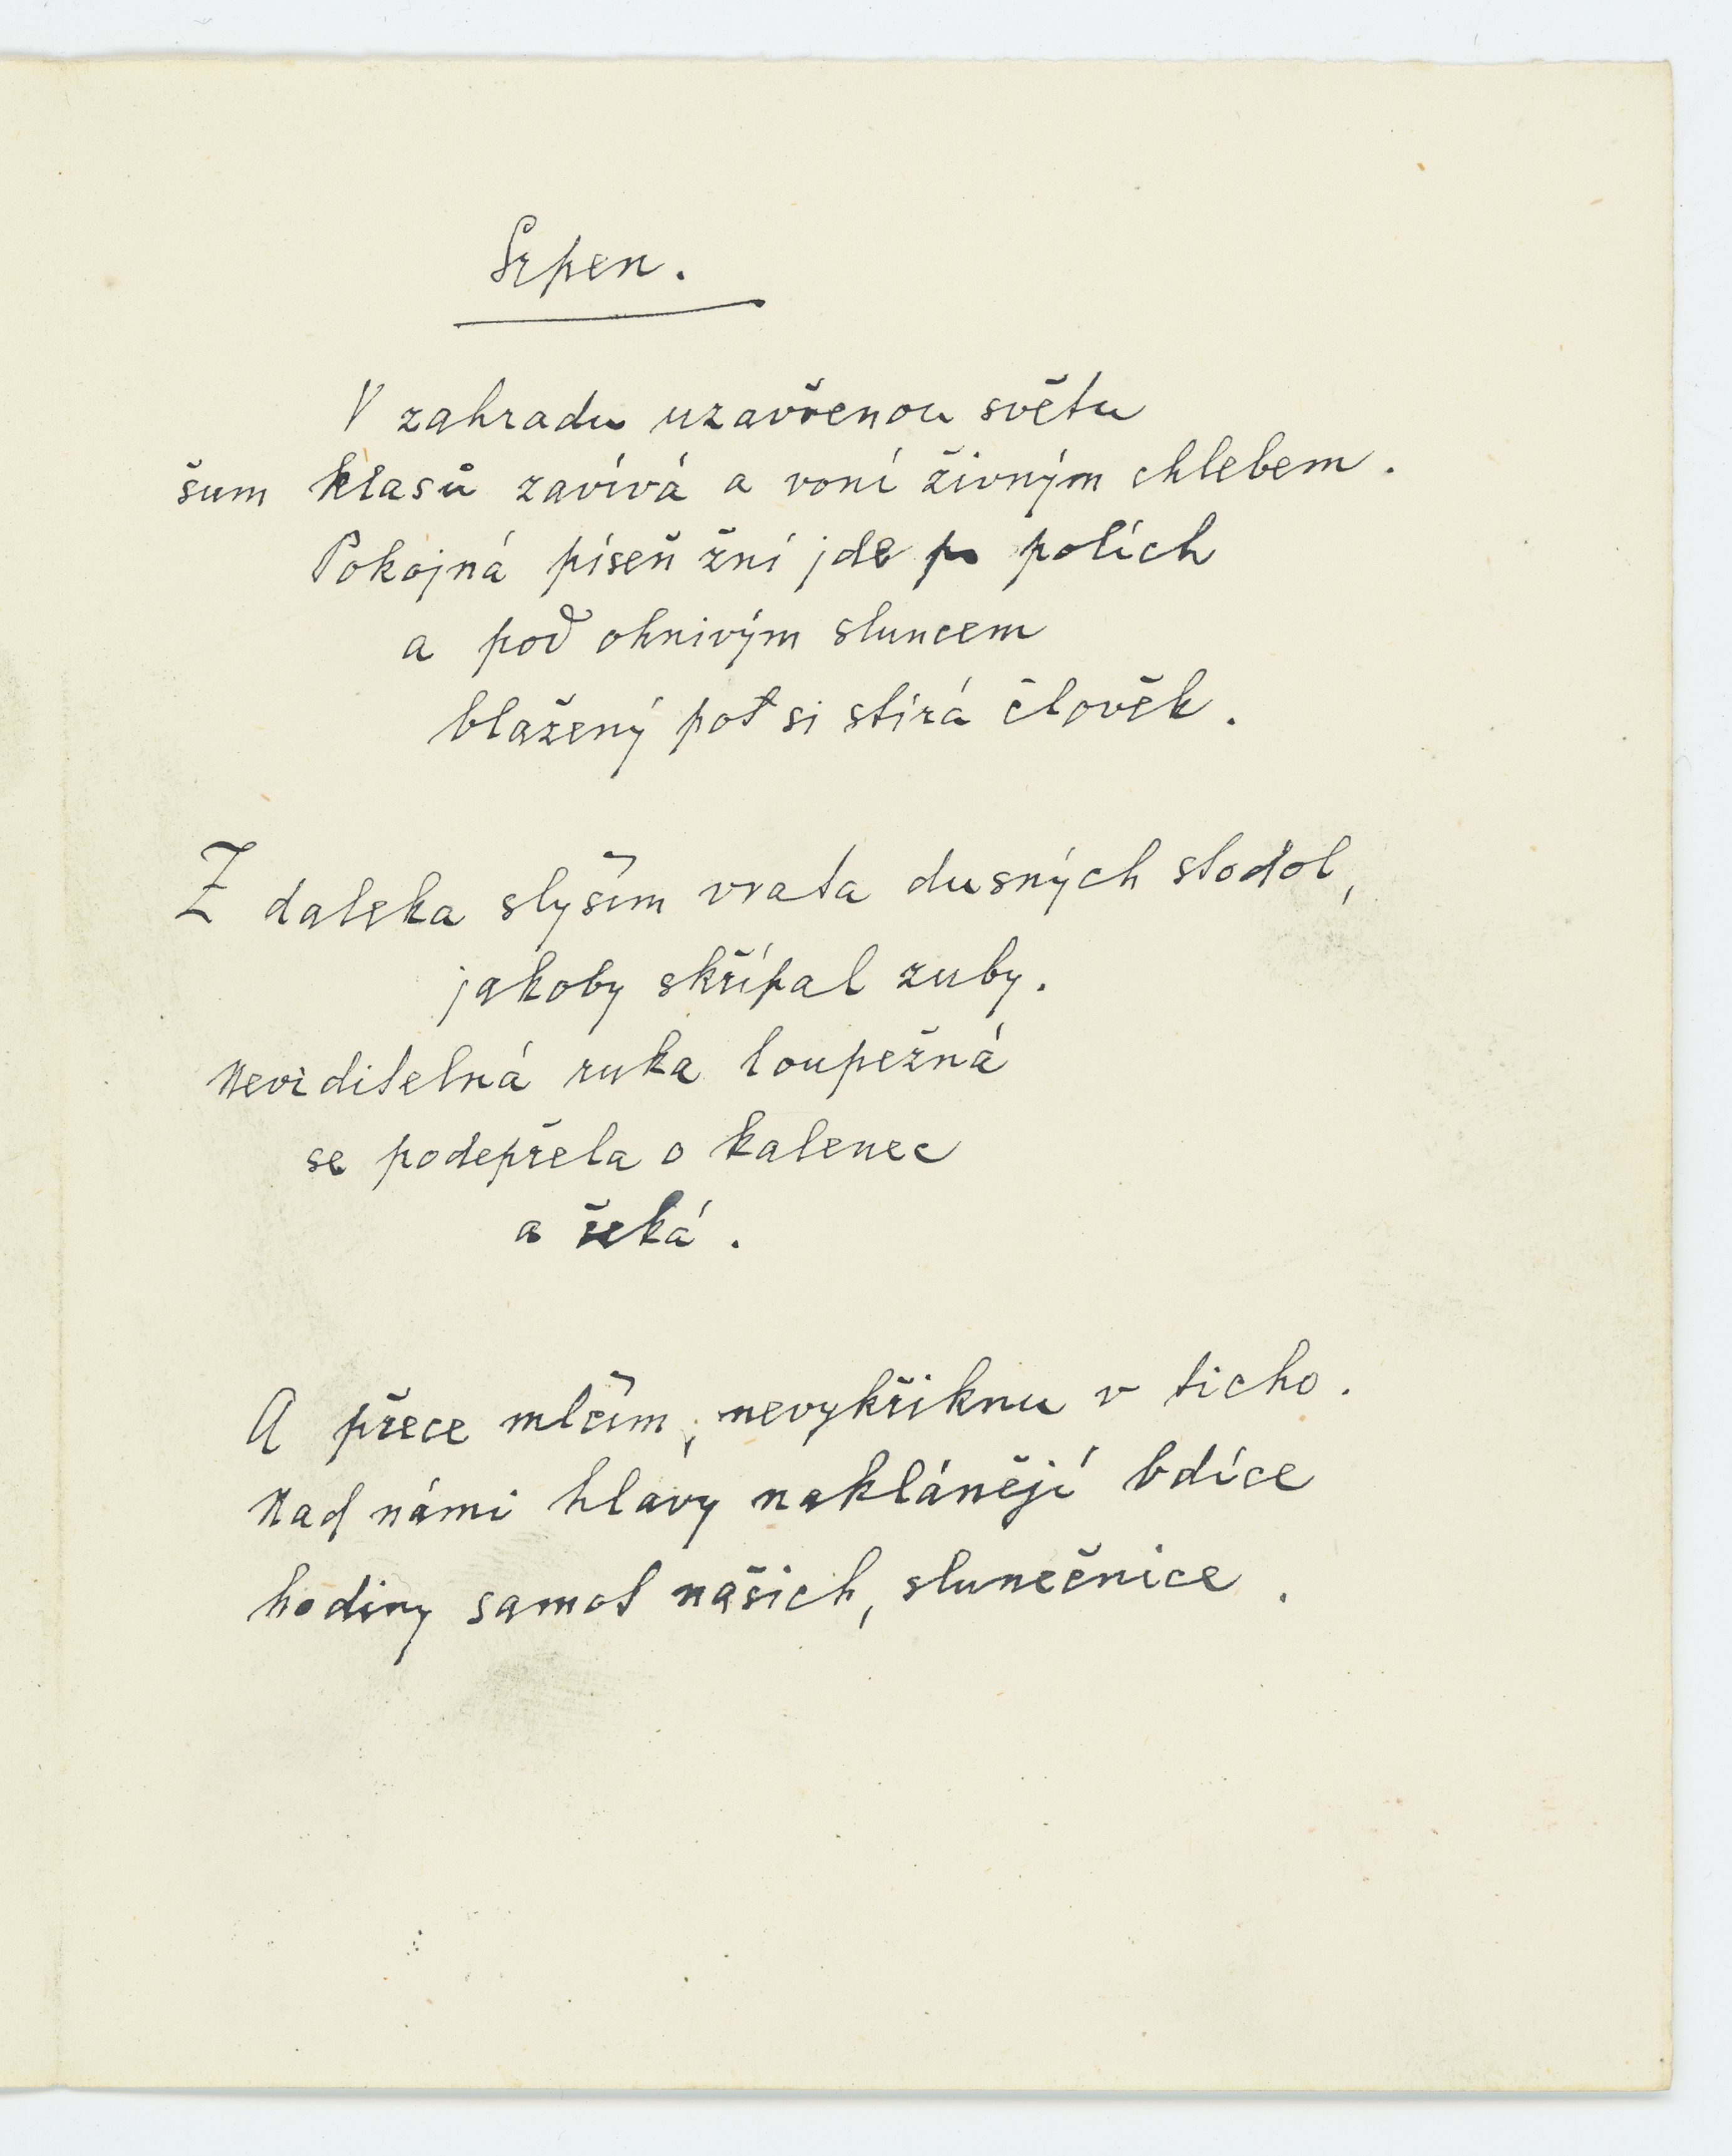 Srpen.
V zahradu uzavřenou světu
šum klasů zavívá a voní živným chlebem.
Pokojná píseň žní jde po polích
a pod ohnivým sluncem
blažený pot si stírá člověk.
Z daleka slyším vrata dusných stodol,
jakoby skřípal zuby.
Neviditelná ruka loupežná
se podepřela o kalenec
a čeká.
A přece mlčím, nevykřiknu v ticho.
Nad námi hlavy naklánějí bdíce
hodiny samot našich, slunečnice.